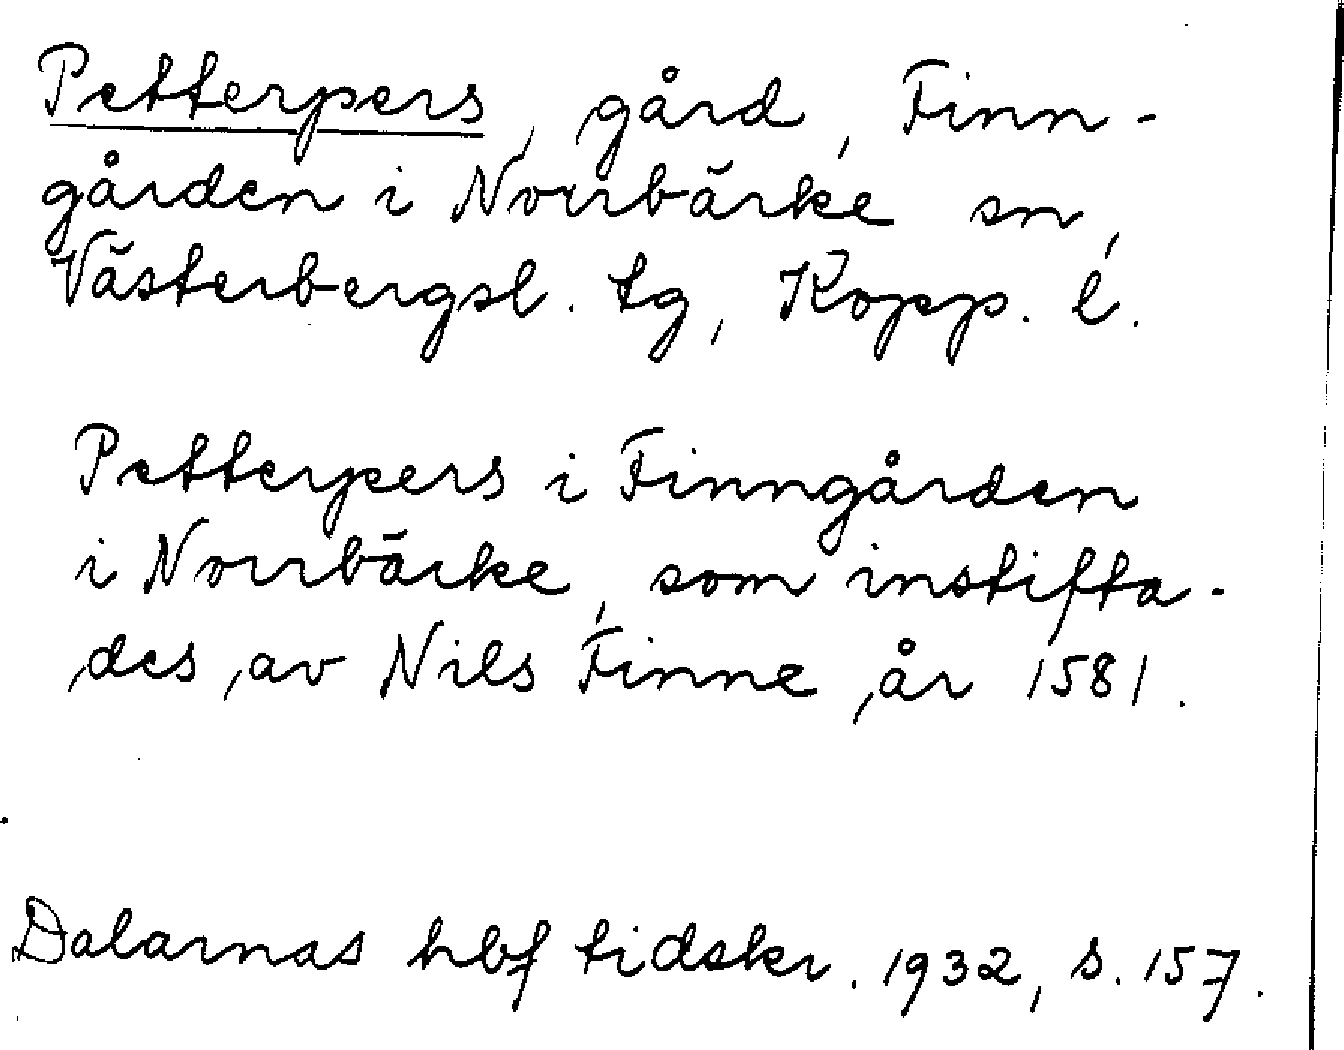 Petterpers, gård, Finn-
gården i Norrbärke sn,
Västerbergsl. tg, Kopp. l.
Petterpers i Finngården
i Norrbärke, som instifta-
des av Nils Finne år 1581.
Dalarnas hbf tidskr. 1932, s. 157.